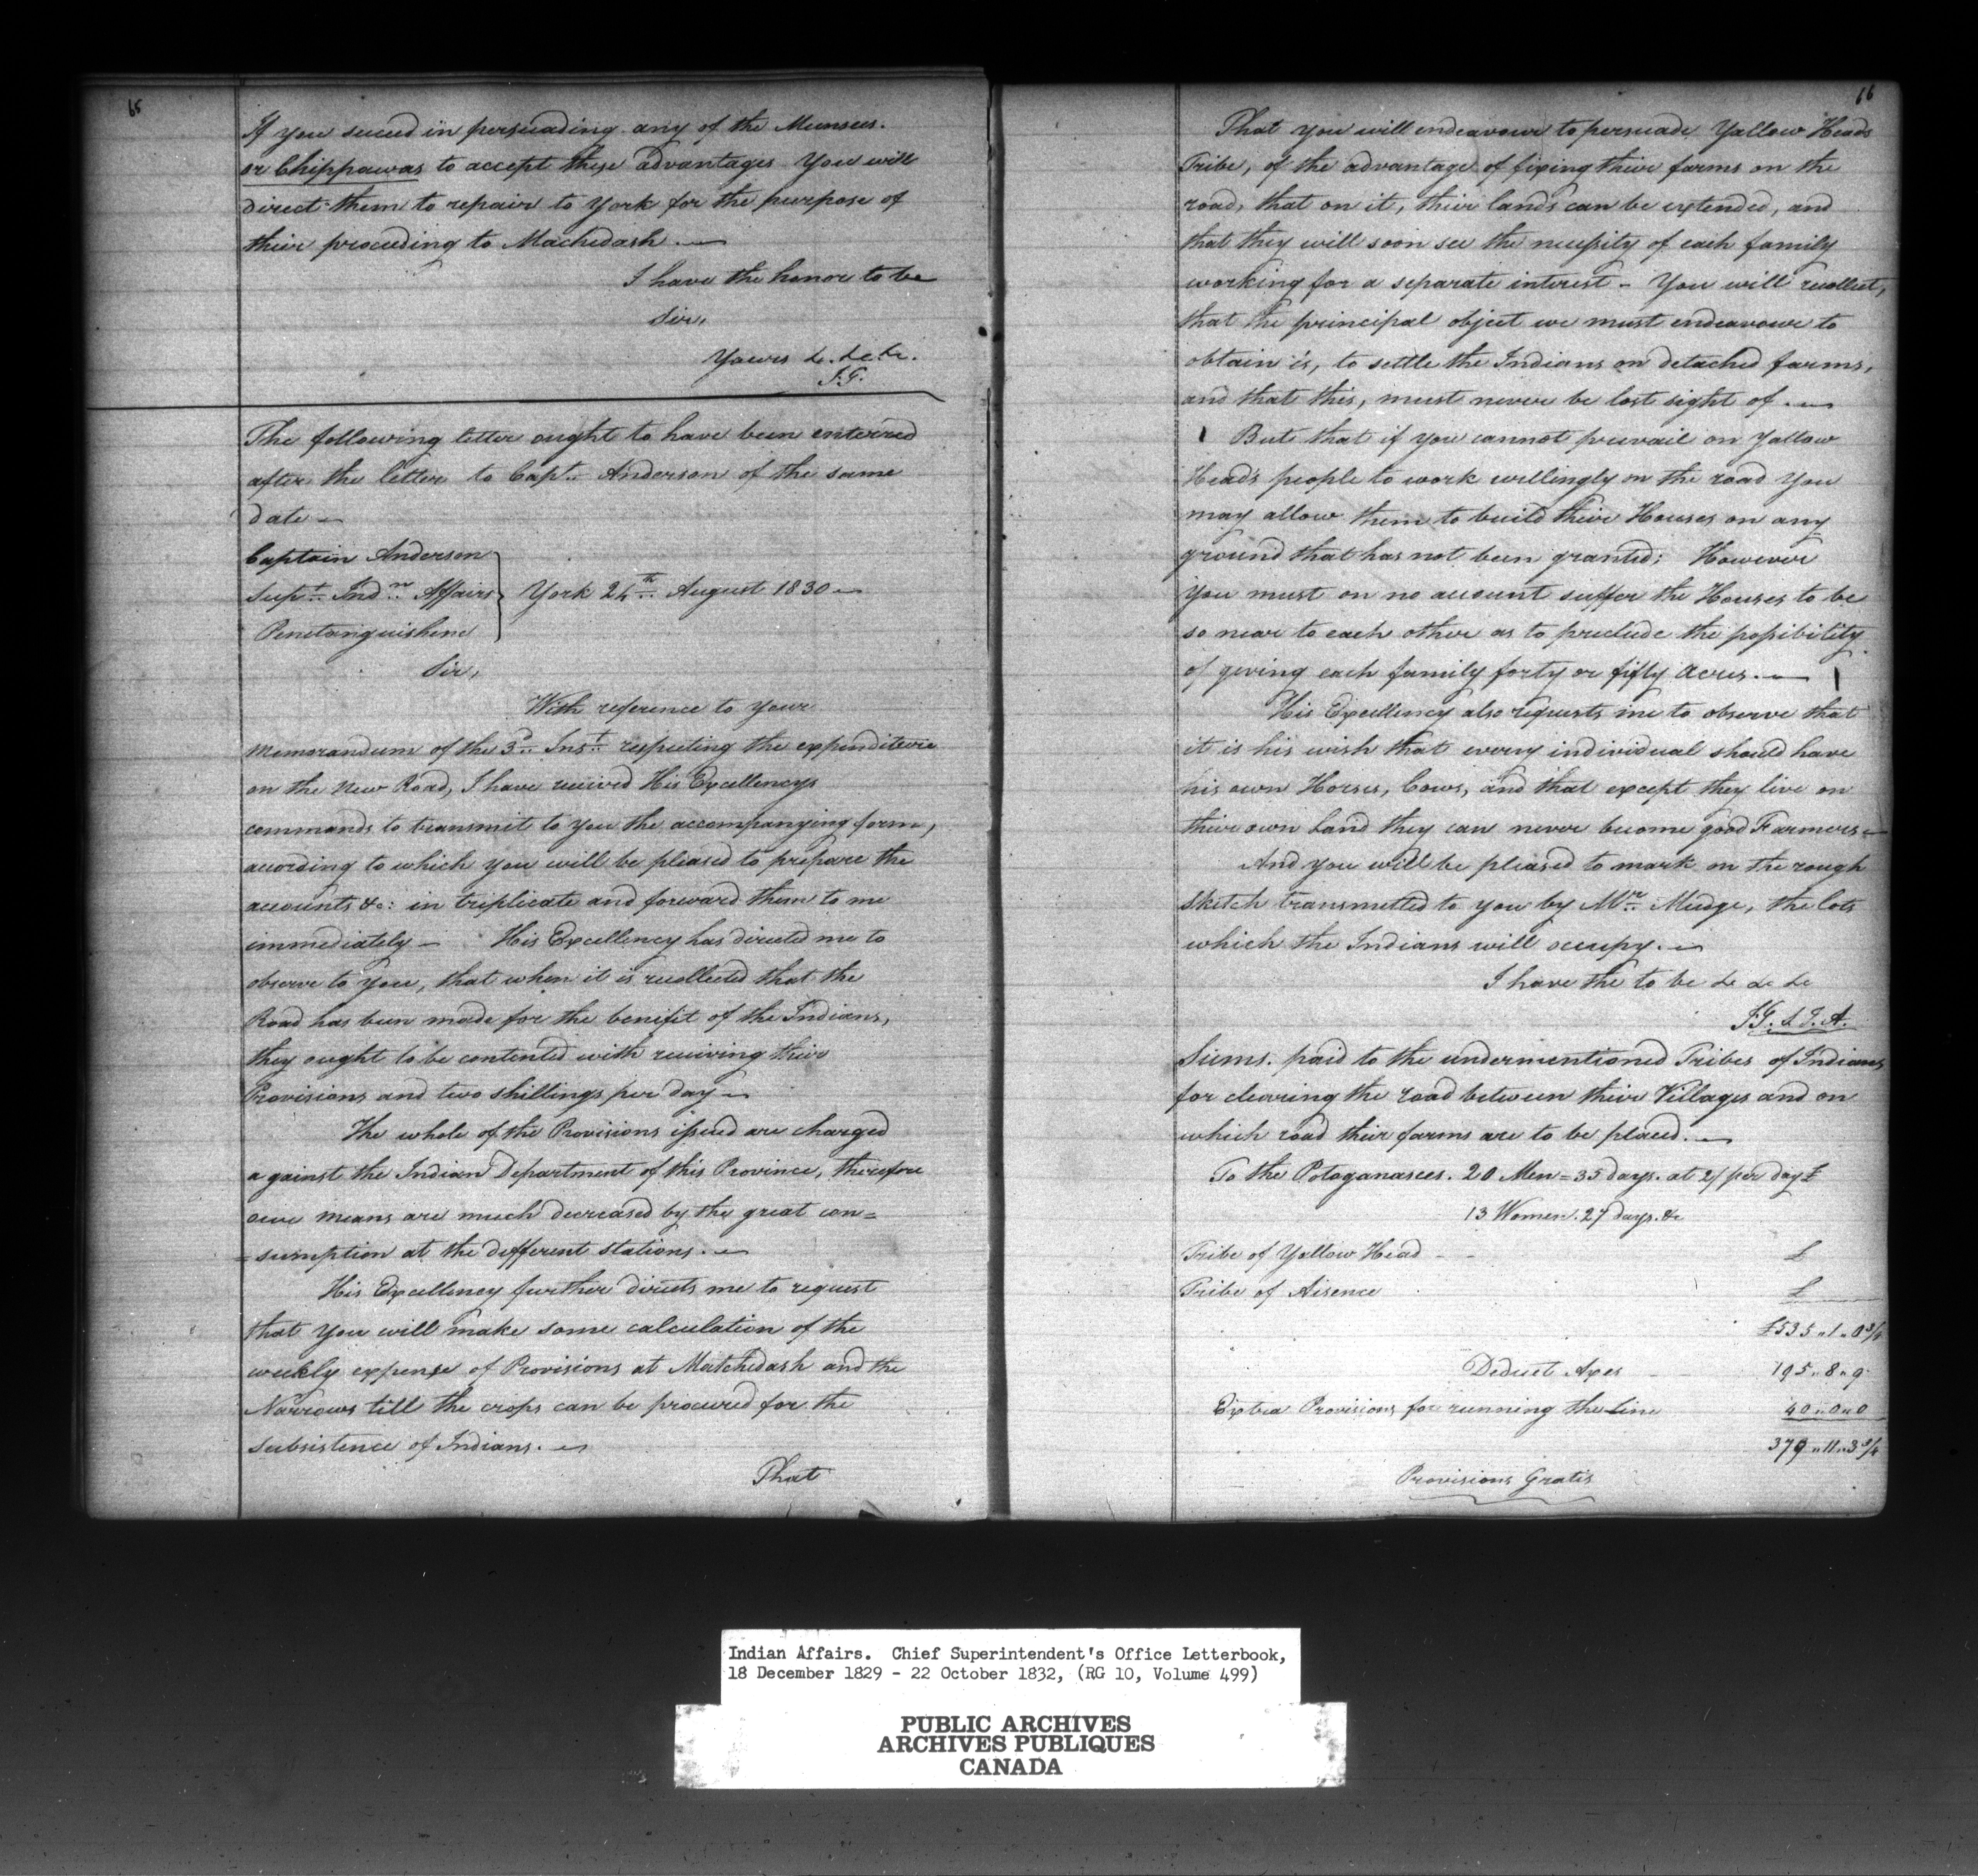 65
If you succeed in persuading any of the Munsees.
or Chippawas to accept these advantages You will
direct them to repair to York for the purpose of
their proceeding to Machedash.
I have the honor to be
Sir,
Yours &c. &c. &c.
J.G.
The following letter ought to have been entered
after the letter to Capt. Anderson of the same
date
Captain Anderson
Supt. Indn. Affairs
Penetanguishene
York 24th August 1830
Sir,
With reference to your
Memorandum of the 3d. Inst. respecting the expenditure
on the New Road, I have received His Excellencys
commands to transmit to you the accompanying form,
according to which you will be pleased to prepare the
accounts &c: in triplicate and forward them to me
immediately — His Excellency has directed me to
observe to you, that when it is recollected that the
Road has been made for the benifit of the Indians,
they ought to be contented with receiving their
Provisions and two shillings per day
The whole of the Provisions issued are charged
against the Indian Department of this Province, therefore
our means are much decreased by the great con=
=sumption at the different stations.
His Excellency further directs me to request
that you will make some calculation of the
weekly expense of Provisions at Matchedash and the
Narrows till the crops can be procured for the
subsistence of Indians.
That
66
That you will endeavour to persuade Yellow Heads
Tribe, of the advantage of fixing their farms on the
road, that on it, their lands can be extended, and
that they will soon see the necessity of each family
working for a separate interest - You will recollect,
that the principal object we must endeavour to
obtain is, to settle the Indians on detached farms,
and that this, must never be lost sight of.
But that if you cannot prevail on Yallow
Head's people to work willingly on the road you
may allow them to build their Houses on any
ground that has not been granted; However
you must on no account suffer the Houses to be
so near to each other as to preclude the possibility
of giving each family forty or fifty Acres.
His Excellency also requests me to observe that
it is his wish that every individual should have
his own Horses, Cows, and that except they live on
their own Land they can never become good Farmers
And you will be pleased to mark on the rough
sketch transmitted to you by Mr. Mudge, the lots
which the Indians will occupy.
I have the to be &c &c &c
J.G. S. I. A.
Sums. paid to the undermentioned Tribes of Indians
for clearing the road between their Villages and on
which road their farms are to be placed.
To the Potaganasees. 20 Men = 35 days. at 2/ per day £
13 Women. 27 days. &c
Tribe of Yallow Head - - £
Tribe of Aisence £
£535 " 1 " 0 3/4
Deduct Axes 195 " 8 " 9
Extra Provisions for running the Line 40 " 0 " 0
379 " 11 " 3 3/4
Provisions Gratis
Indian Affairs. Chief Superintendent's Office Letterbook,
18 December 1829 - 22 October 1832, (RG 10, Volume 499)
PUBLIC ARCHIVES
ARCHIVES PUBLIQUES
CANADA